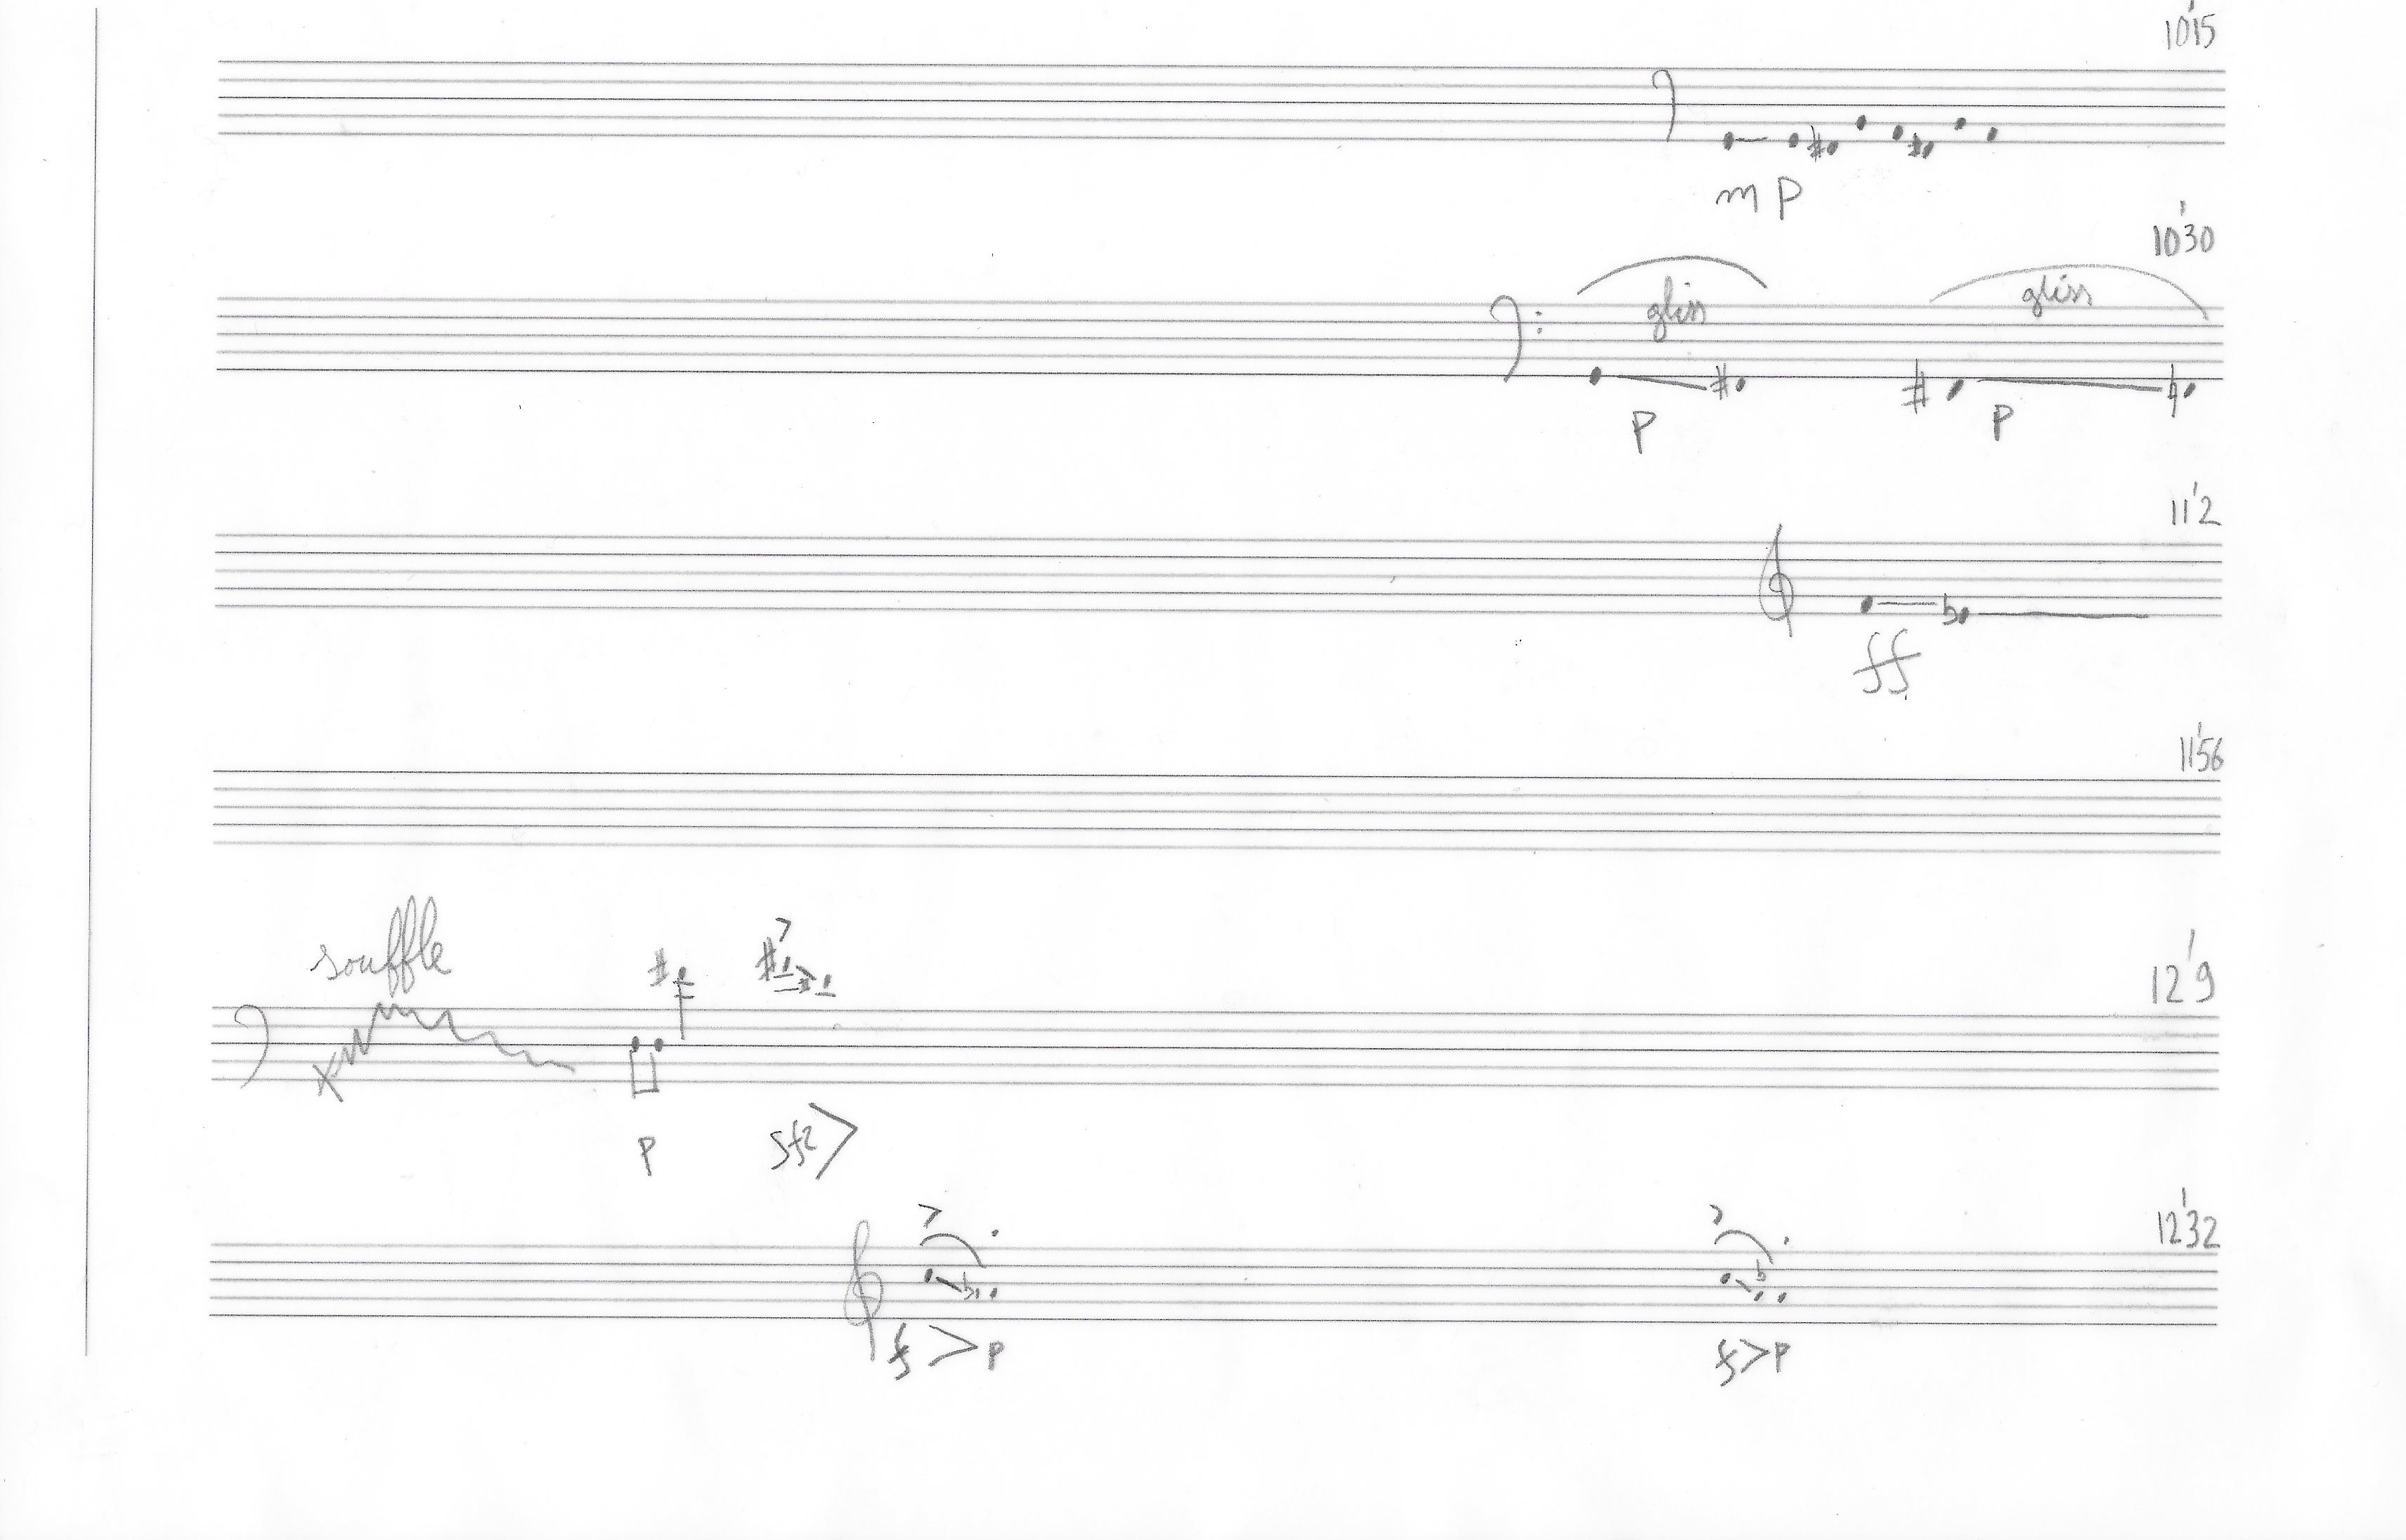 10'15
mp
10'30
gliss gliss
p p
11'2
ff
11'56
souffle
12'9
p sfz
12'32
f > p f > p